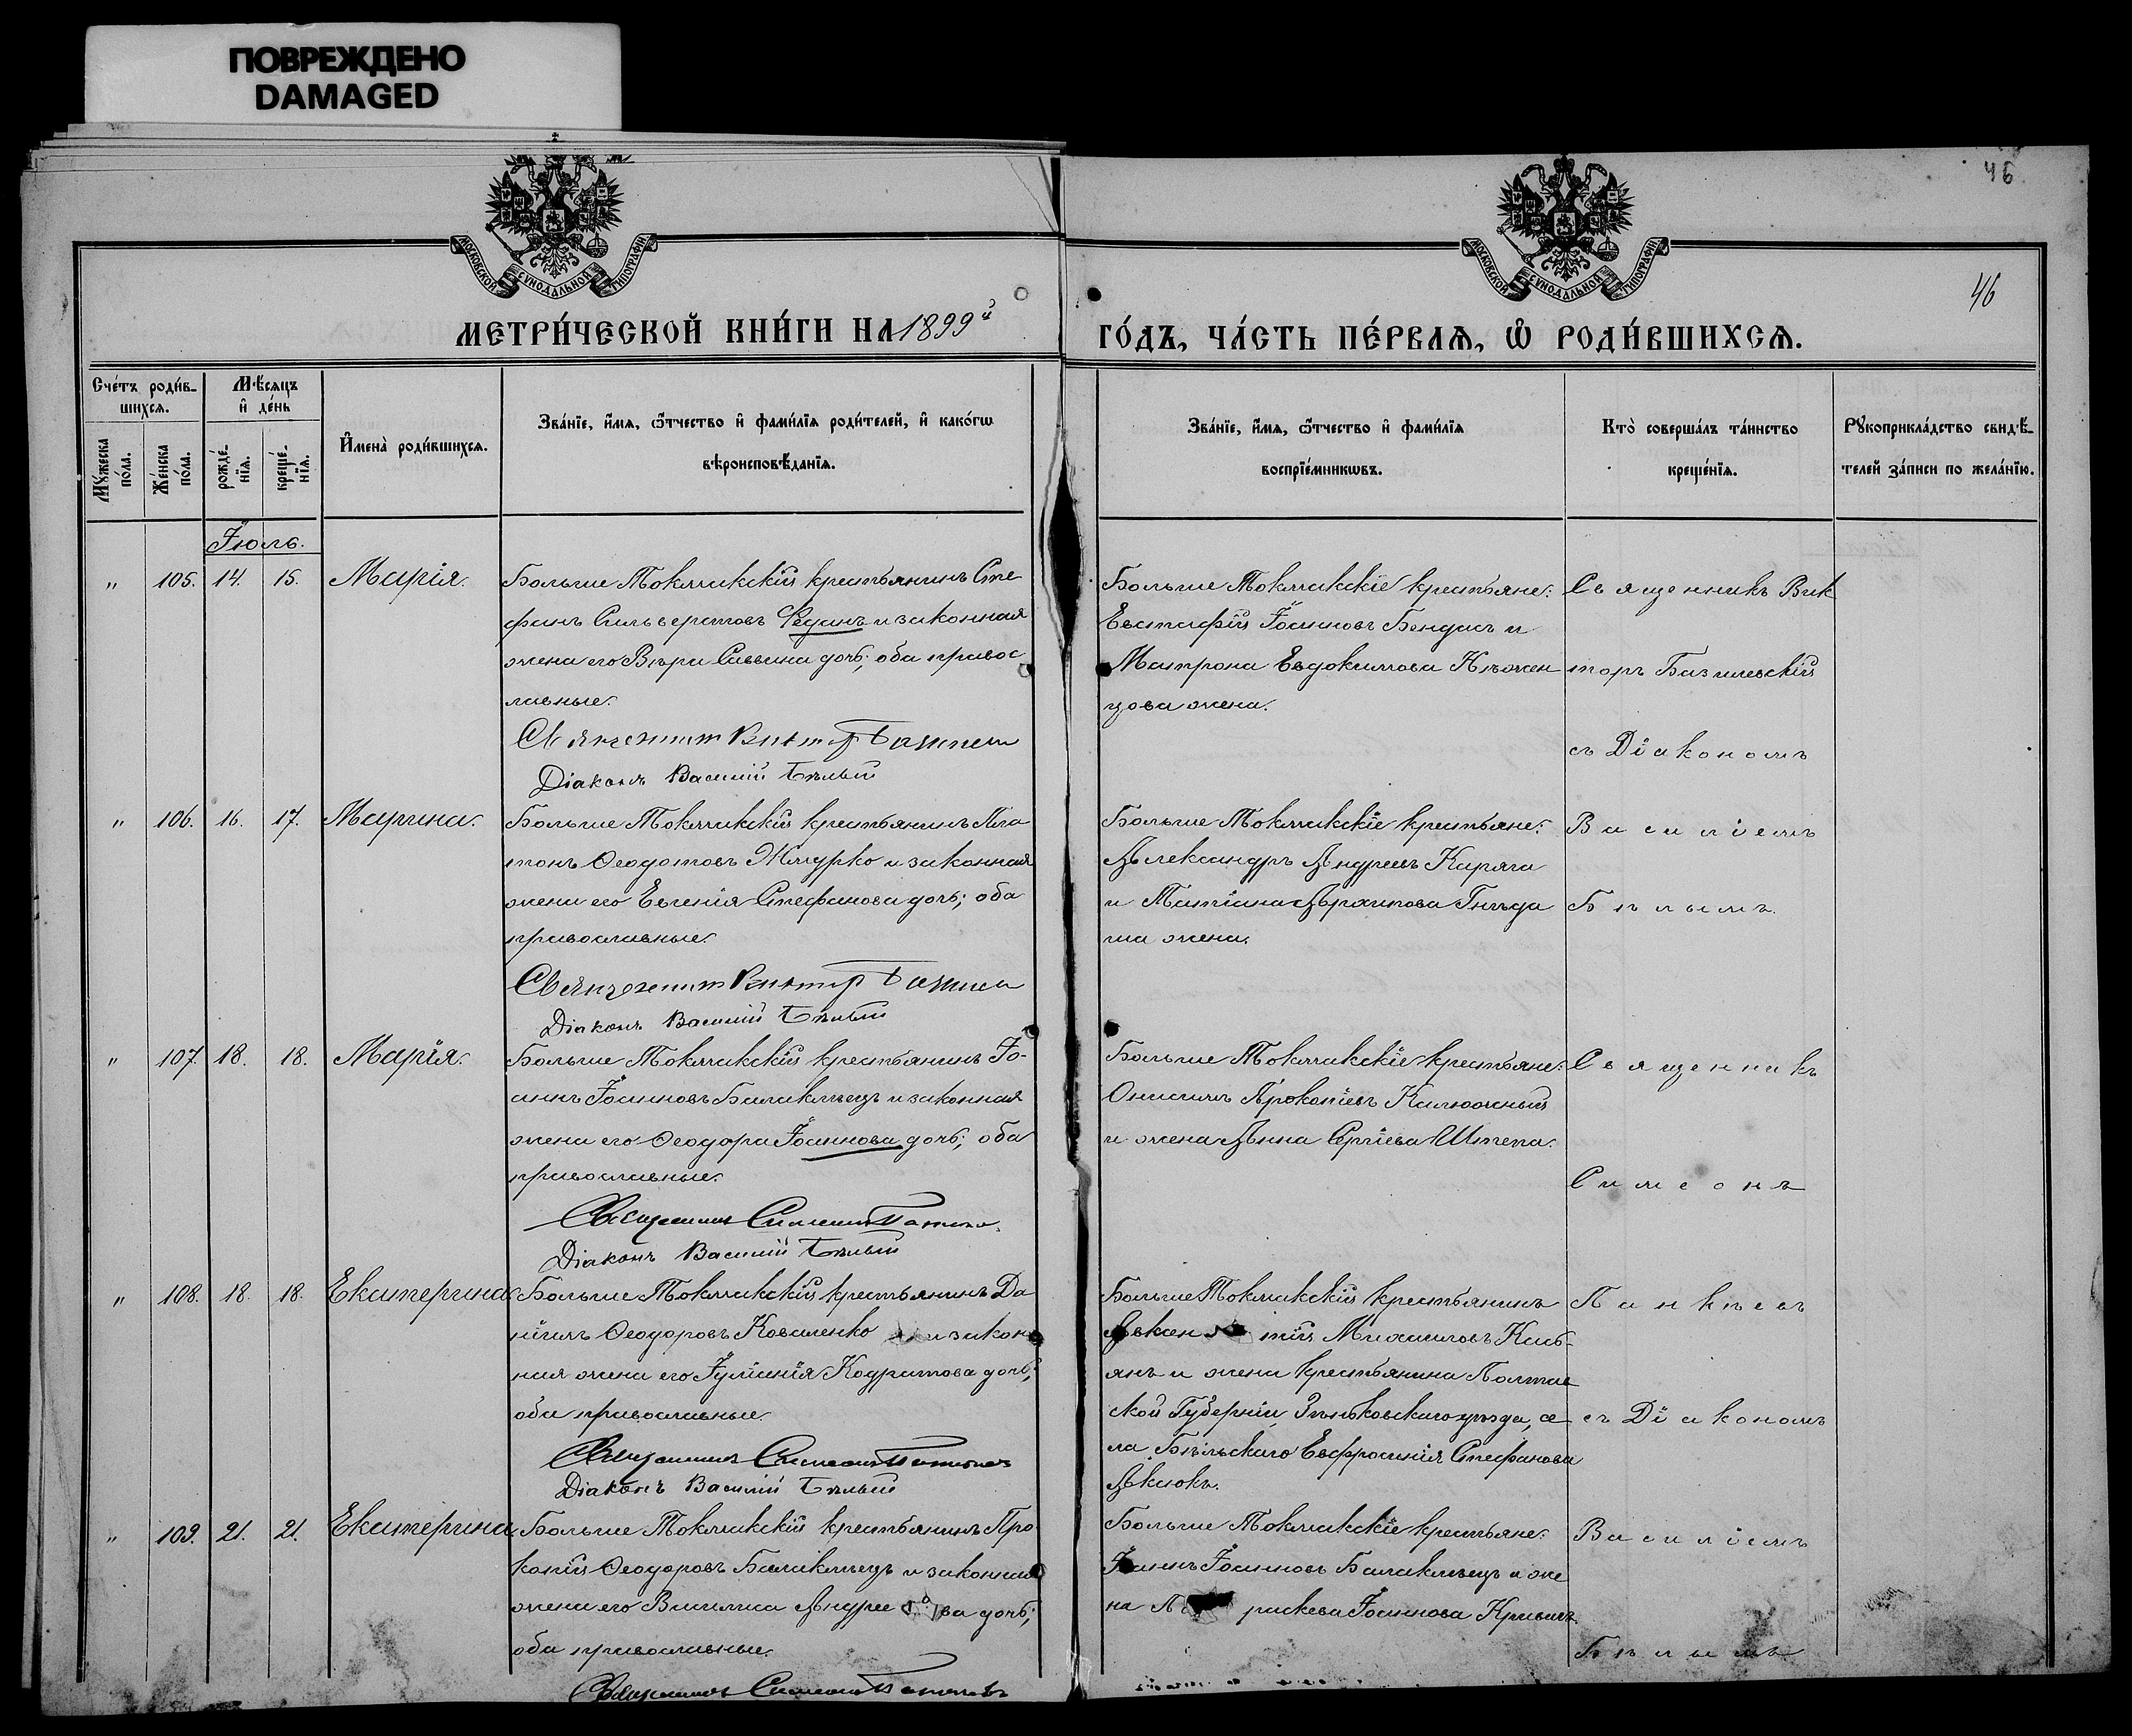 ПОВРЕЖДЕНО
DAMAGED
46
46
МОСКОВСКОЙ СѴНОДАЛЬНОЙ ТИПОГРАФІИ
МОСКОВСКОЙ СѴНОДАЛЬНОЙ ТИПОГРАФІИ
МЕТРИ́ЧЕСКОЙ КНИ́ГИ НА 1899й
ГО́ДЪ, ЧА́СТЬ ПЕ́РВАѦ, Ѽ РОДИ́ВШИХСѦ.
Сче́тъ роди́в-
шихсѧ.
Мѣ́сѧцъ
и҆ де́нь
Мꙋ́жеска
по́ла.
Же́нска
по́ла.
рожде́-
нїѧ.
креще́-
нїѧ.
И҆мена̀ роди́вшихсѧ.
Зва́нїе, и҆́мѧ, ѻ҆́тчество и҆ фами́лїѧ роди́телей, и҆ како́гѡ
вѣроисповѣ́данїѧ.
Зва́нїе, и҆́мѧ, ѻ҆́тчество и҆ фами́лїѧ
воспрїе́мникѡвъ.
Кто̀ соверша́лъ та́инство
креще́нїѧ.
Рꙋкоприкла́дство свидѣ́-
телей за́писи по жела́нїю.
Іюль.
" 105. 14. 15. Марія.
Больше Токмакскій крестьянинъ Сте
фанъ Сильверстовъ Феданъ и законная
жена его Вѣра Саввина дочь; оба правос
лавные.
Священник Виктор Базилев
Діаконъ Василий Бѣлый
Больше Токмакскіе крестьяне:
Евстафій Іоанновъ Бендасъ и
Матрона Евдокимова Кѣжен
цова жена.
Священникъ Вик
торъ Базилевскій
съ Діакономъ
" 106. 16. 17. Марина.
Больше Токмакскій крестьянинъ Пла
тонъ Ѳеодотовъ Жмурко и законная
жена его Евгенія Стефанова дочь; оба
православные.
Священник Виктор Базилев
Діаконъ Василий Бѣлый
Больше Токмакскіе крестьяне:
Александръ Андреевъ Каряга
и Татіана Архипова Гнѣда
ша жена.
Василіемъ
Бѣлымъ.
" 107. 18. 18. Марія.
Больше Токмакскій крестьянинъ Іо-
аннъ Іоанновъ Балаклѣецъ и законная
жена его Ѳеодора Іоаннова дочь; оба
православные.
Священникъ Симеонъ Панкѣевъ
Діаконъ Василий Бѣлый
Больше Токмакскіе крестьяне:
Онисимъ Прокопіевъ Калюжный
и жена Анна Сергіева Штепа.
Священникъ
Симеонъ
" 108. 18. 18. Екатерина
Больше Токмакскій крестьянинъ Да
ніилъ Ѳеодоровъ Коваленко и закон
ная жена его Іуліанія Кодратова дочь;
оба православные.
Священникъ Симеонъ Панкѣевъ
Діаконъ Василий Бѣлый
Больше Токмакскій крестьянинъ
Авксен тій Михаиловъ Касb-
янъ и жена крестьянина Полтав
ской Губерніи, Зѣньковскаго уѣзда, се
ла Бѣльскаго Евфросинія Стефанова
Аксюкъ.
Панкѣевъ
съ Діакономъ
" 109. 21. 21. Екатерина
Больше Токмакскій крестьянинъ Про
копій Ѳеодоровъ Балаклѣецъ и законная
жена его Васили́са Андрее ва дочь;
оба православные.
Священникъ Симеонъ Панкѣевъ
Больше Токмакскіе крестьяне:
Іоаннъ Іоанновъ Балаклѣецъ и же
на П раскева Іоаннова Кривичъ
Василіемъ
Бѣлымъ